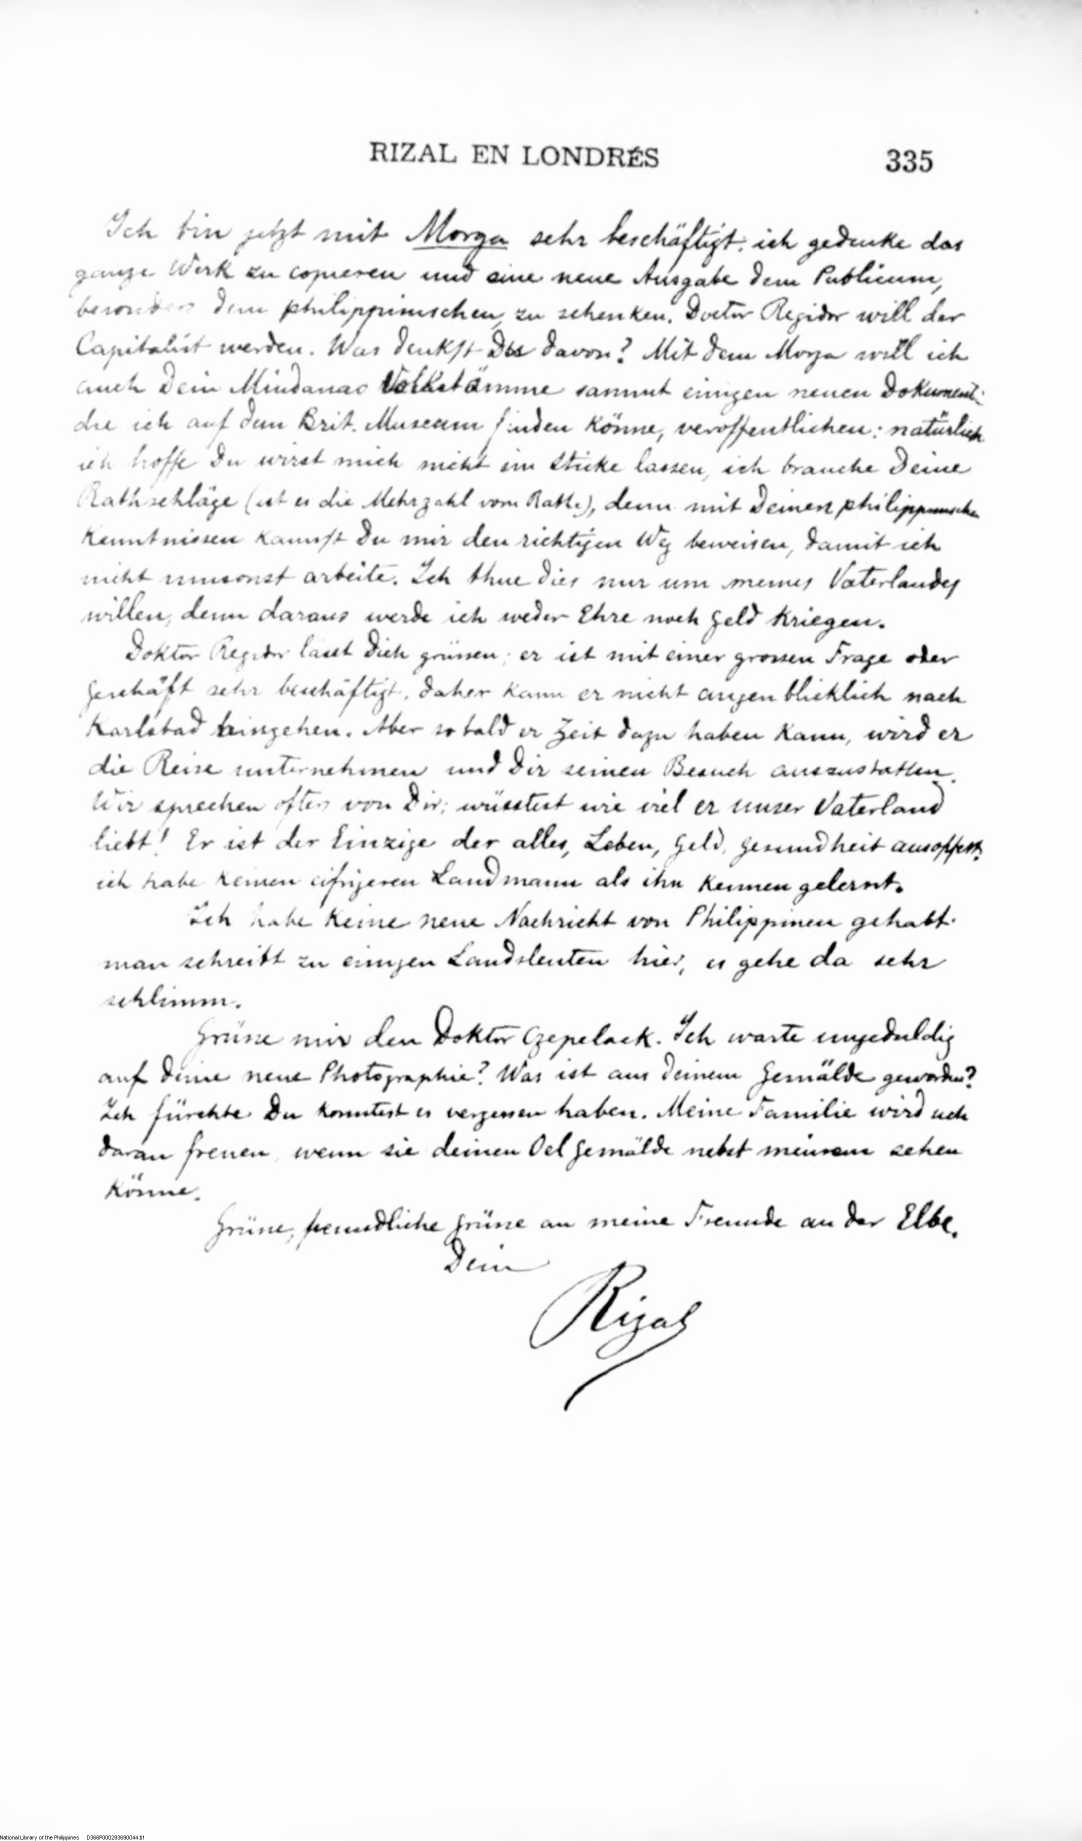 RIZAL EN LONDRÉS 335
Ich bin jetzt mit Morga sehr beschäftigt; ich gedenke das
ganze Werk zu copieren und eine neue Ausgabe dem Publicum,
besonders dem philippinischen, zu schenken. Doctor Regidor will der
Capitalist werden. Was denkst Du davon? Mit dem Morga will ich
auch Dein Mindanao Volkstämme sammt einigen neuen Dokument-
die ich auf dem Brit. Museum finden könne, veröffentlichen: natürlich
ich hoffe Du wirst mich nicht im Sticke lassen, ich brauche Deine
Rathschläge (ist es die Mehrzahl vom Rath?), denn mit Deinen philippinischen
Kenntnissen kannst Du mir den richtigen Weg beweisen, damit ich
nicht umsonst arbeite. Ich thue dies nur um meines Vaterlandes
willen, denn daraus werde ich weder Ehre noch Geld kriegen.
Doktor Regidor lässt Dich grüssen; er ist mit einer grossen Frage oder
Geschäft sehr beschäftigt, daher kann er nicht augenblicklich nach
Karlsbad hingehen. Aber sobald er Zeit dazu haben kann, wird er
die Reise unternehmen und Dir seinen Besuch auszustatten.
Wir sprechen öfters von Dir; wüsstest wie viel er unser Vaterland
liebt! Er ist der Einzige der alles, Leben, Geld, Gesundheit ausopfert;
ich habe keinen eifrigeren Landmann als ihn kennen gelernt.
Ich habe keine neue Nachricht von Philippinen gehabt.
man schreibt zu einigen Landsleuten hier, es gehe da sehr
schlimm.
Grüsse mir den Doktor Czepelack. Ich warte ungeduldig
auf deine neue Photographie? Was ist aus deinem Gemälde geworden?
Ich fürchte Du konntest es vergessen haben. Meine Familie wird sich
daran freuen, wenn sie deinen Oelgemälde nebst meinem sehen
könne.
Grüsse, freundliche Grüsse an meine Freunde an der Elbe.
Dein
Rizal
National Library of the Philippines